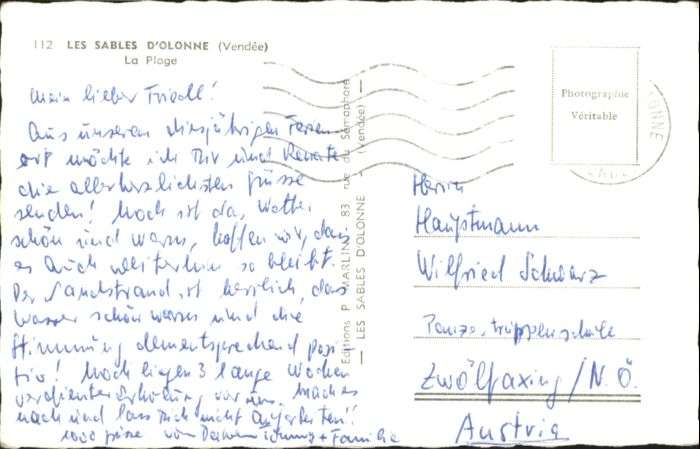 112 LES SABLES D'OLONNE (Vendée)
La Plage
Mein lieber Friedl!
Aus unserem diesjährigen Ferien-
ort möchte ich Dir und Renate
die allerherzlichsten Grüsse
senden! Noch ist das Wetter
schön und warm, hoffen wir, dass
es auch weiterhin so bleibt.
Der Sandstrand ist herrlich, das
Wasser schön warm und die
Stimmung dementsprechend posi-
tiv! Noch liegen 3 lange Wochen
verdienter Erholung vor uns. Mach es
nach und lass Dich nicht ausarbeiten!!
1000 Grüsse von Deinem + Familie
Editions P. MARLIN, 83 rue du Sémaphore
— LES SABLES D'OLONNE - (Vendée) —
Photographie
Véritable
OLONNE
Herrn
Hauptmann
Wilfried Schwarz
Panzertruppenschule
Zwölfaxing / N.Ö.
Austria